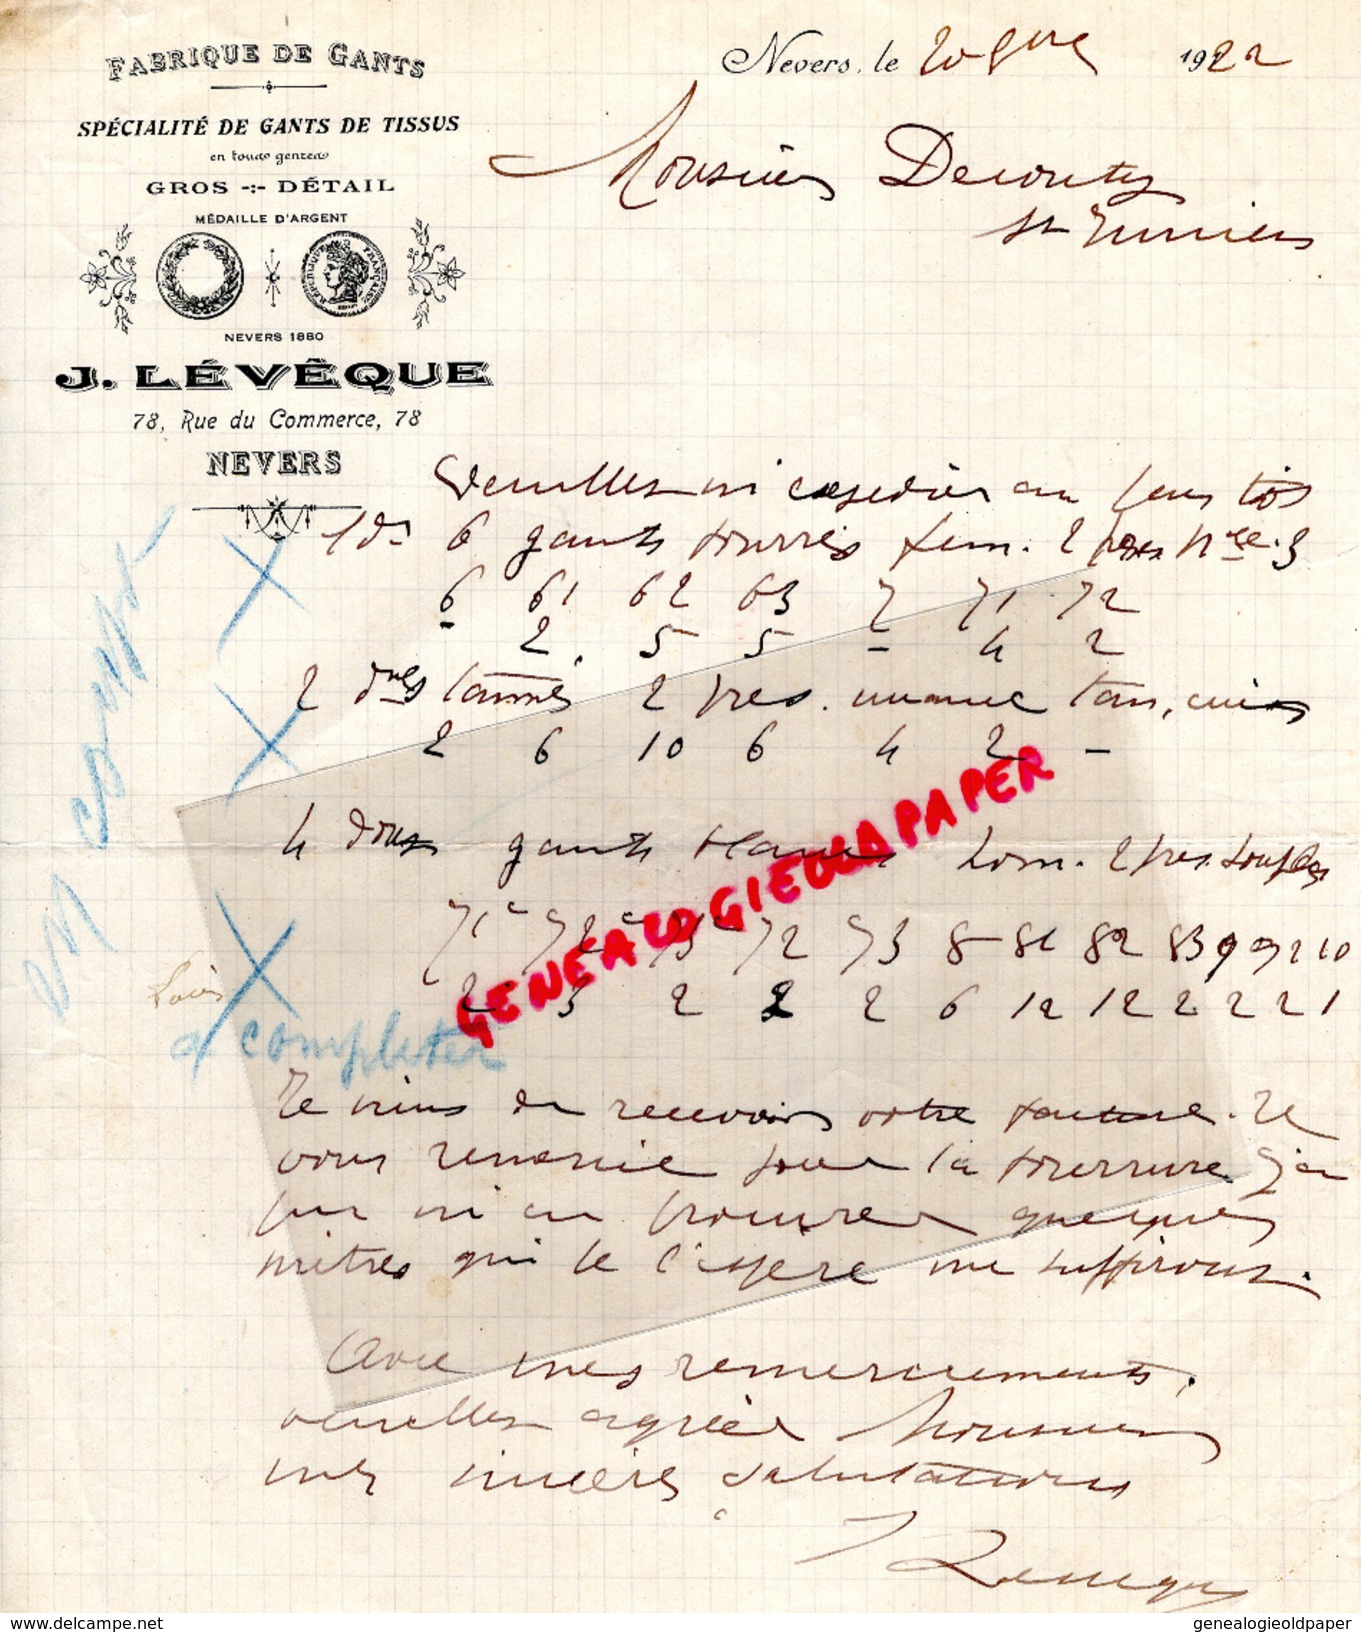 FABRIQUE DE GANTS
SPÉCIALITÉ DE GANTS DE TISSUS
en tous genres
GROS -:- DÉTAIL
MÉDAILLE D'ARGENT
RÉPUBLIQUE FRANÇAISE
NEVERS 1880
J. LÉVÊQUE
78, Rue du Commerce, 78
NEVERS
Nevers, le 20 1922
Monsieur Decouty
St Junien
Veuillez m'expédier au plus tôt
6 gants fourrés 2 pres
6 61 62 63 7 71 72
- 2 5 5 - 4 2
2 tannés 2 pres. nuance tan, cuir
2 6 10 6 4 2 -
4 douz gants blancs hom. 2 pres. souples
71c 72c 73c 72 73 8 81 82 83 9 92 10
2 3 2 2 2 6 12 12 2 2 2 1
à completer
Louis
Je viens de recevoir votre facture. Je
vous remercie pour la fourrure j'ai
pu m'en procurer quelques
mètres qui je l'espère me suffiront.
Avec mes remerciements,
veuillez agréer Monsieur
mes sincères salutations
J Leveque
GENEALOGIEOLDPAPER
www.delcampe.net
genealogieoldpaper